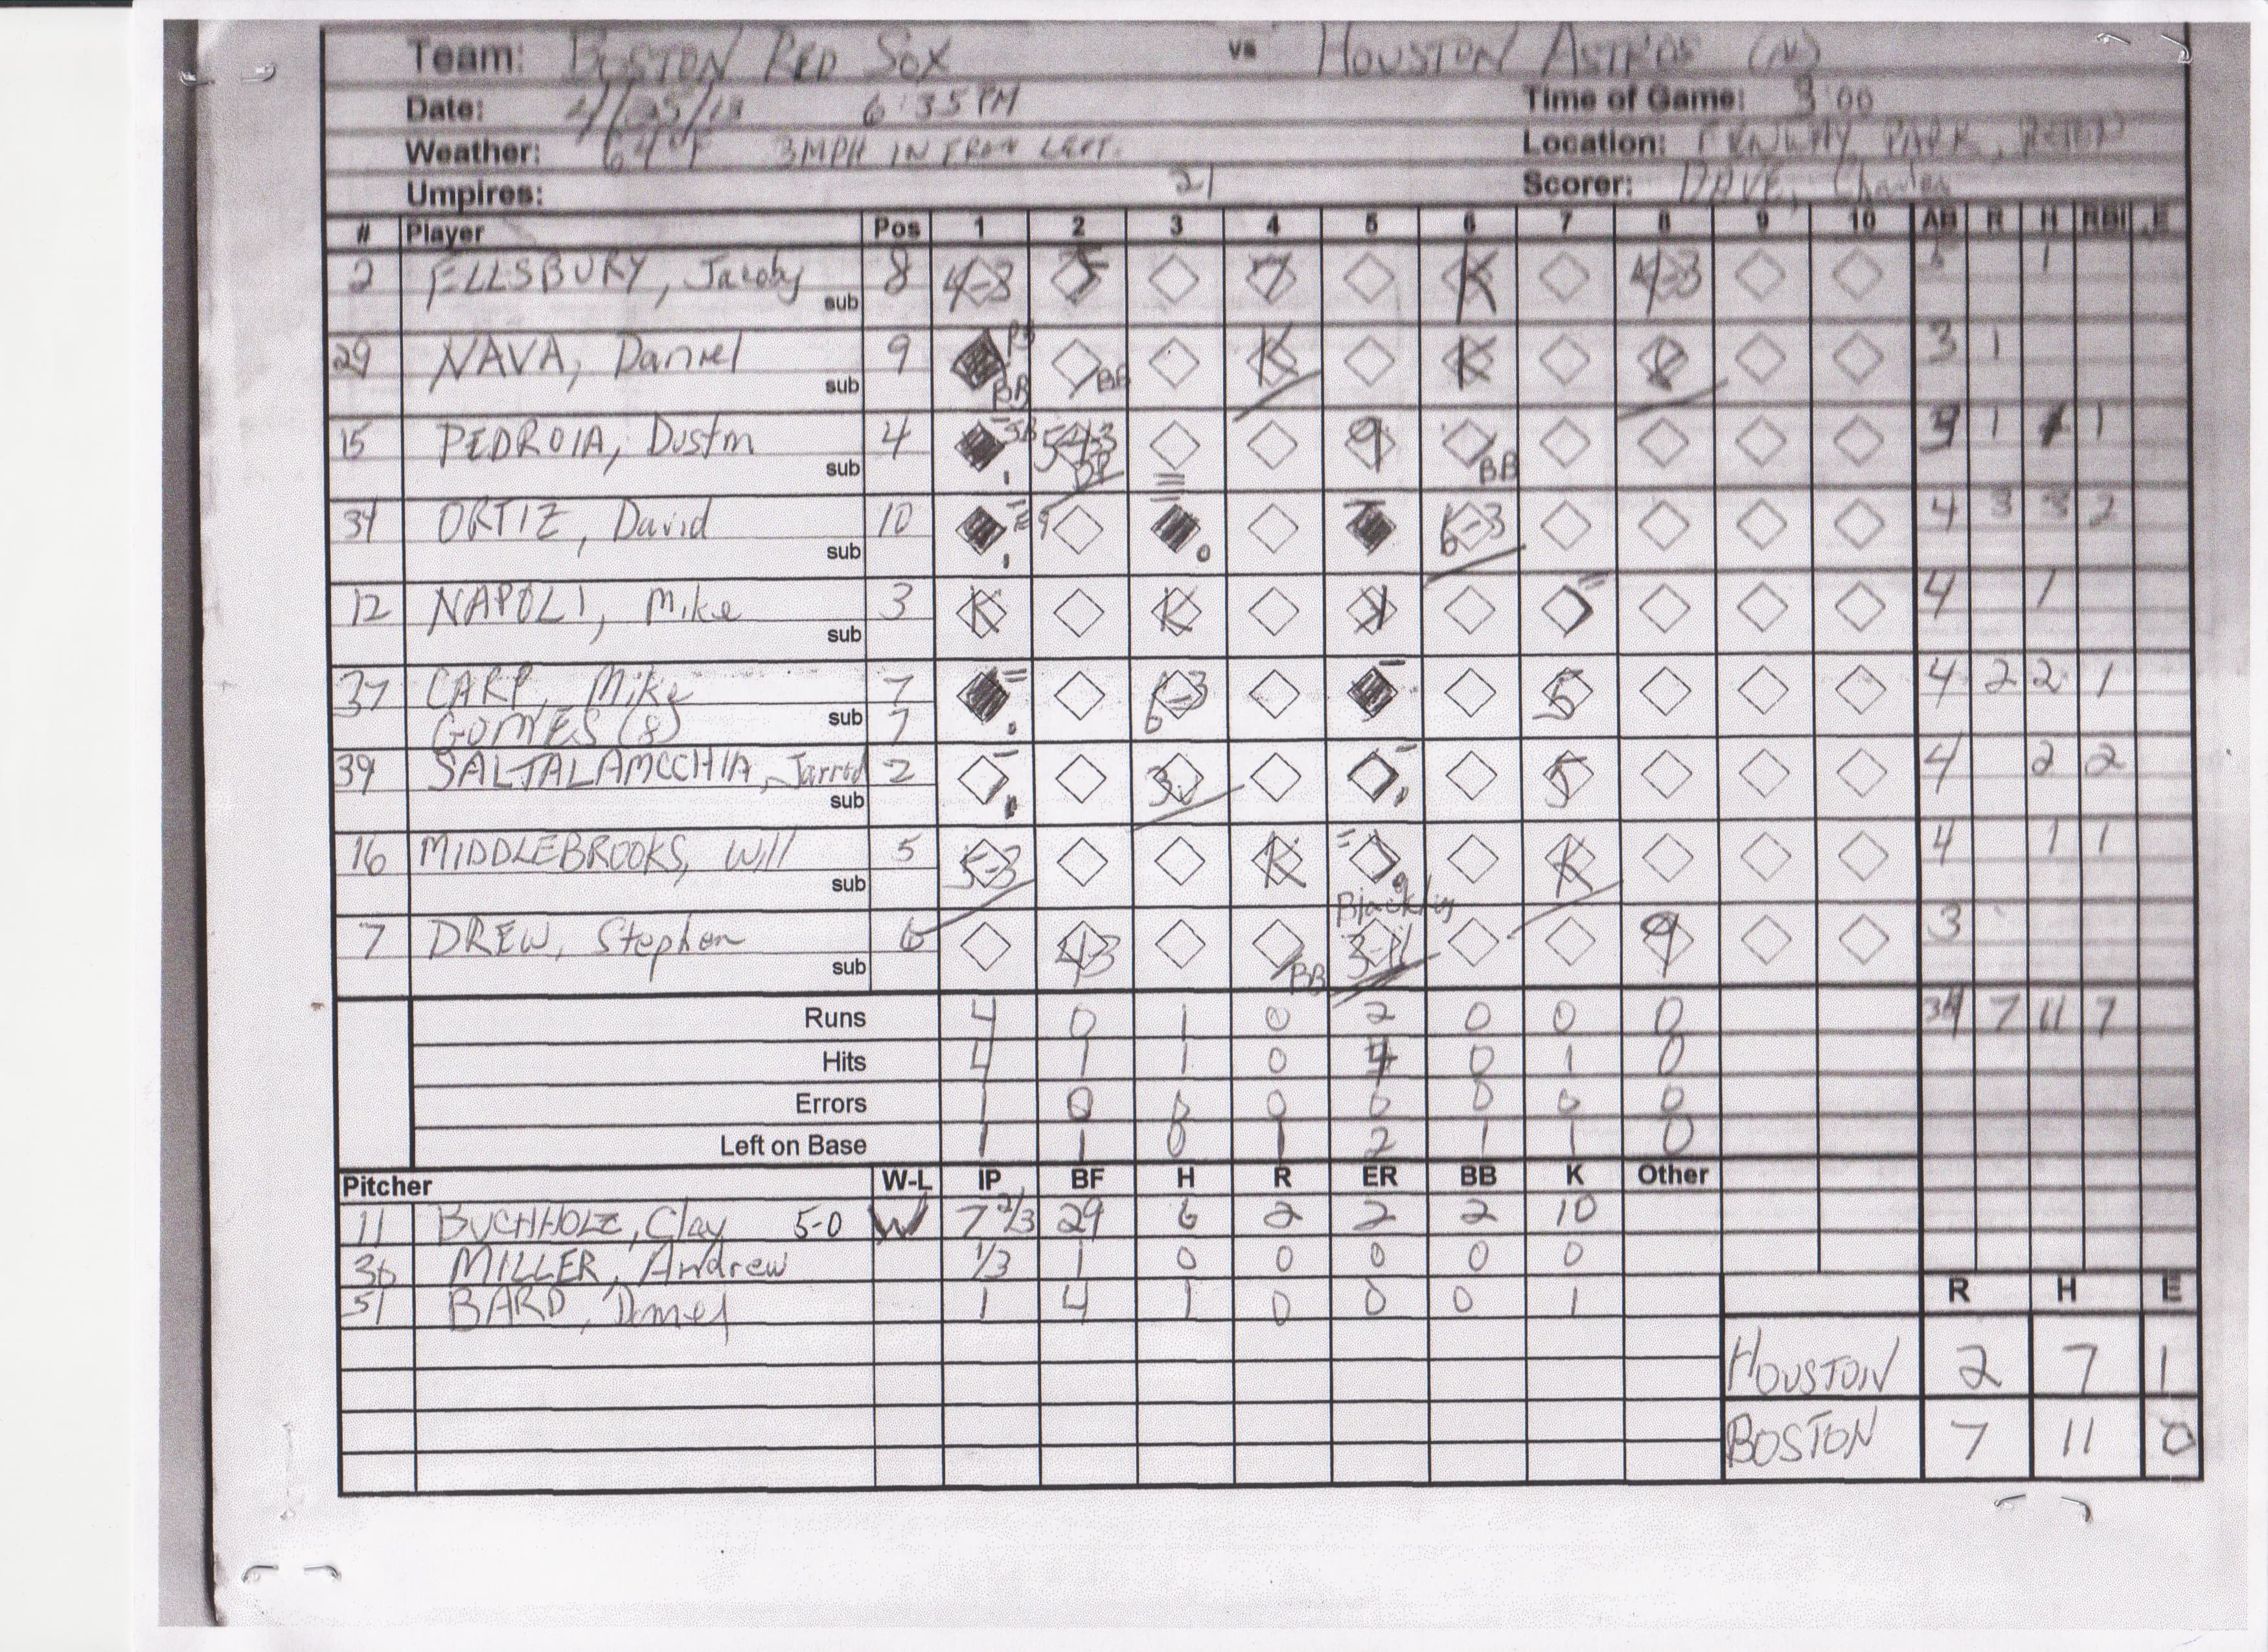 Team: BOSTON RED SOX vs HOUSTON ASTROS (N)
Date: 4/25/13 6:35 PM Time of Game: 3:00
Weather: 64°F 3MPH IN FROM LEFT. Location: FENWAY PARK,
Umpires: 21 Scorer: DAVE, Charles
# Player Pos 1 2 3 4 5 6 7 8 9 10 AB R H RBI E
2 ELLSBURY, Jacoby 8 4-3 7 K 4-3 5 1
sub
29 NAVA, Daniel 9 BB BB K K 3 1
sub
15 PEDROIA, Dustin 4 5-4-3 DP 9 BB 3 1 1 1
sub
34 ORTIZ, David 10 E9 6-3 4 3 3 2
sub
12 NAPOLI, Mike 3 K K K 4 1
sub
37 CARP, Mike 7 6-3 5 4 2 2 1
GOMES (8) sub 7
39 SALTALAMCCHIA, Jarrod 2 3U 5 4 2 2
sub
16 MIDDLEBROOKS, Will 5 5-3 K K 4 1 1
sub
7 DREW, Stephen 6 4-3 BB 9 3
sub
Runs 4 0 1 0 2 0 0 0 34 7 11 7
Hits 4 1 1 0 4 0 1 0
Errors 1 0 0 0 0 0 0 0
Left on Base 1 1 0 1 2 1 1 0
Pitcher W-L IP BF H R ER BB K Other
11 BUCHHOLZ, Clay 5-0 W 7 2/3 29 6 2 2 2 10
36 MILLER, Andrew 1/3 1 0 0 0 0 0
51 BARD, Daniel 1 4 1 0 0 0 1
R H E
HOUSTON 2 7 1
BOSTON 7 11 0